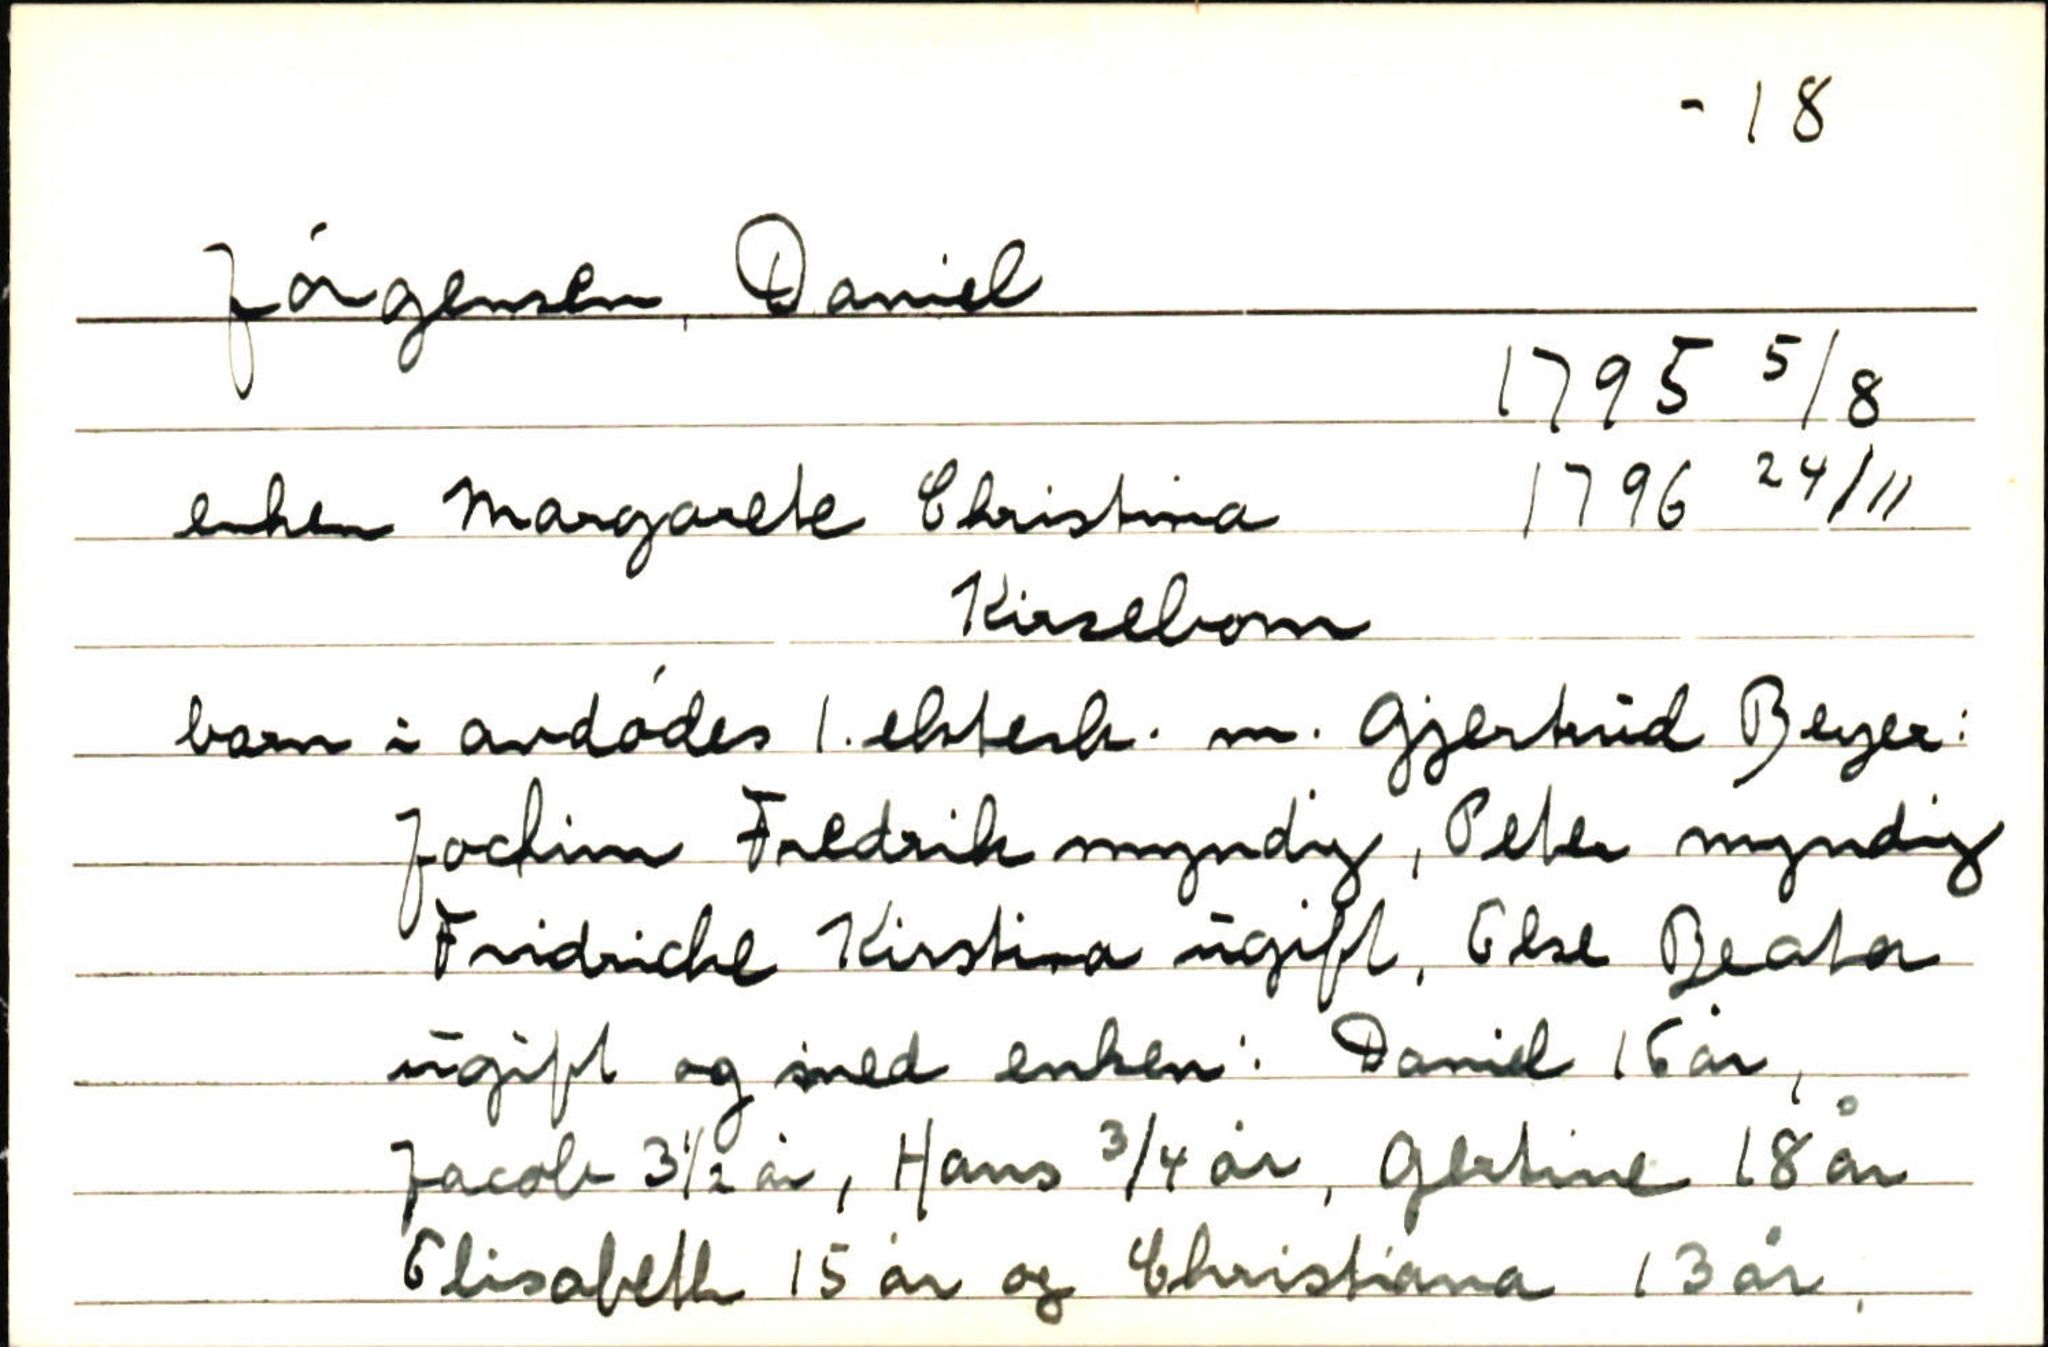 - 18
Jørgensen, Daniel
1795 5/8
enken Margarete Christina 1796 24/11
Kirsebom
barn i avdødes 1. ektesk. m. Gjertrud Beyer:
Jochim Fredrik myndig, Peter myndig
Fridriche Kirstina ugift, Else Beata
ugift og med enken: Daniel 16 år,
Jacob 3 1/2 år, Hans 3/4 år, Gertine 18 år
Elisabeth 15 år og Christiana 13 år.